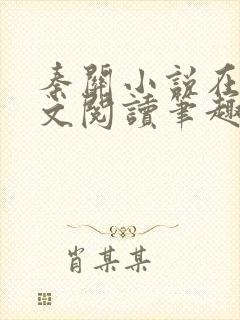 秦關小說在
文閱讀筆趣
肖某某